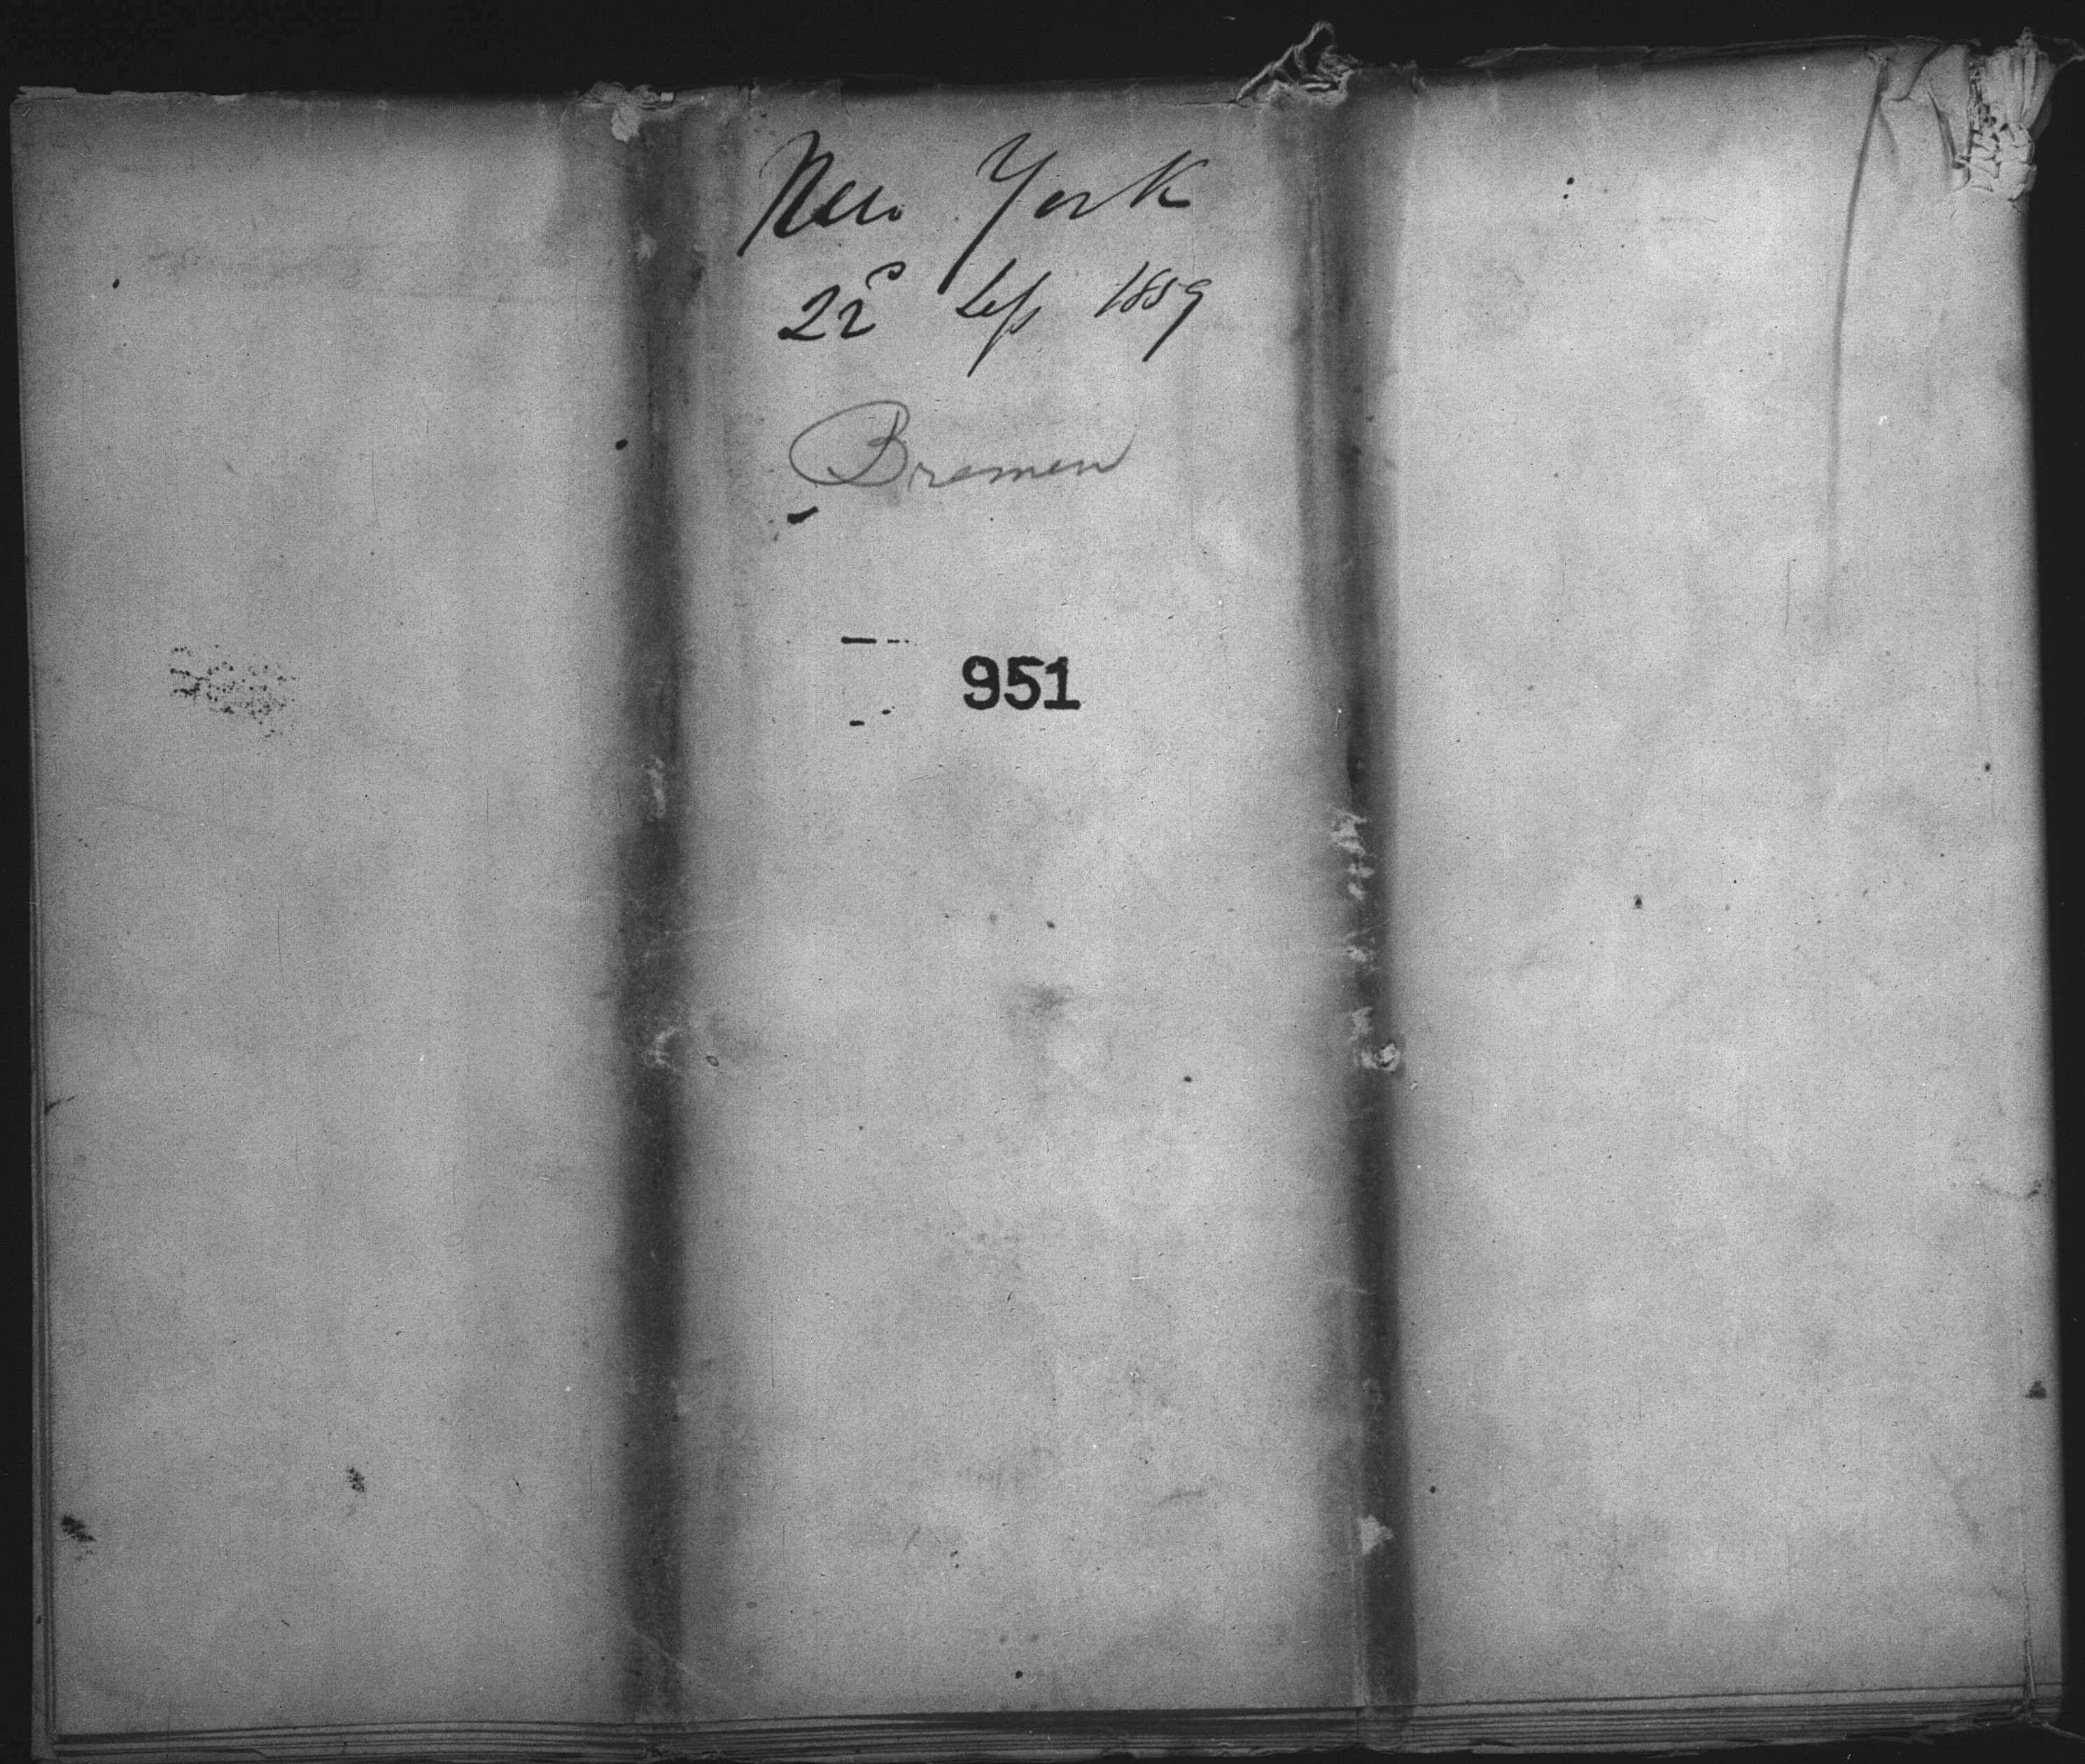 New York
22d Sep 1859
Bremen
951